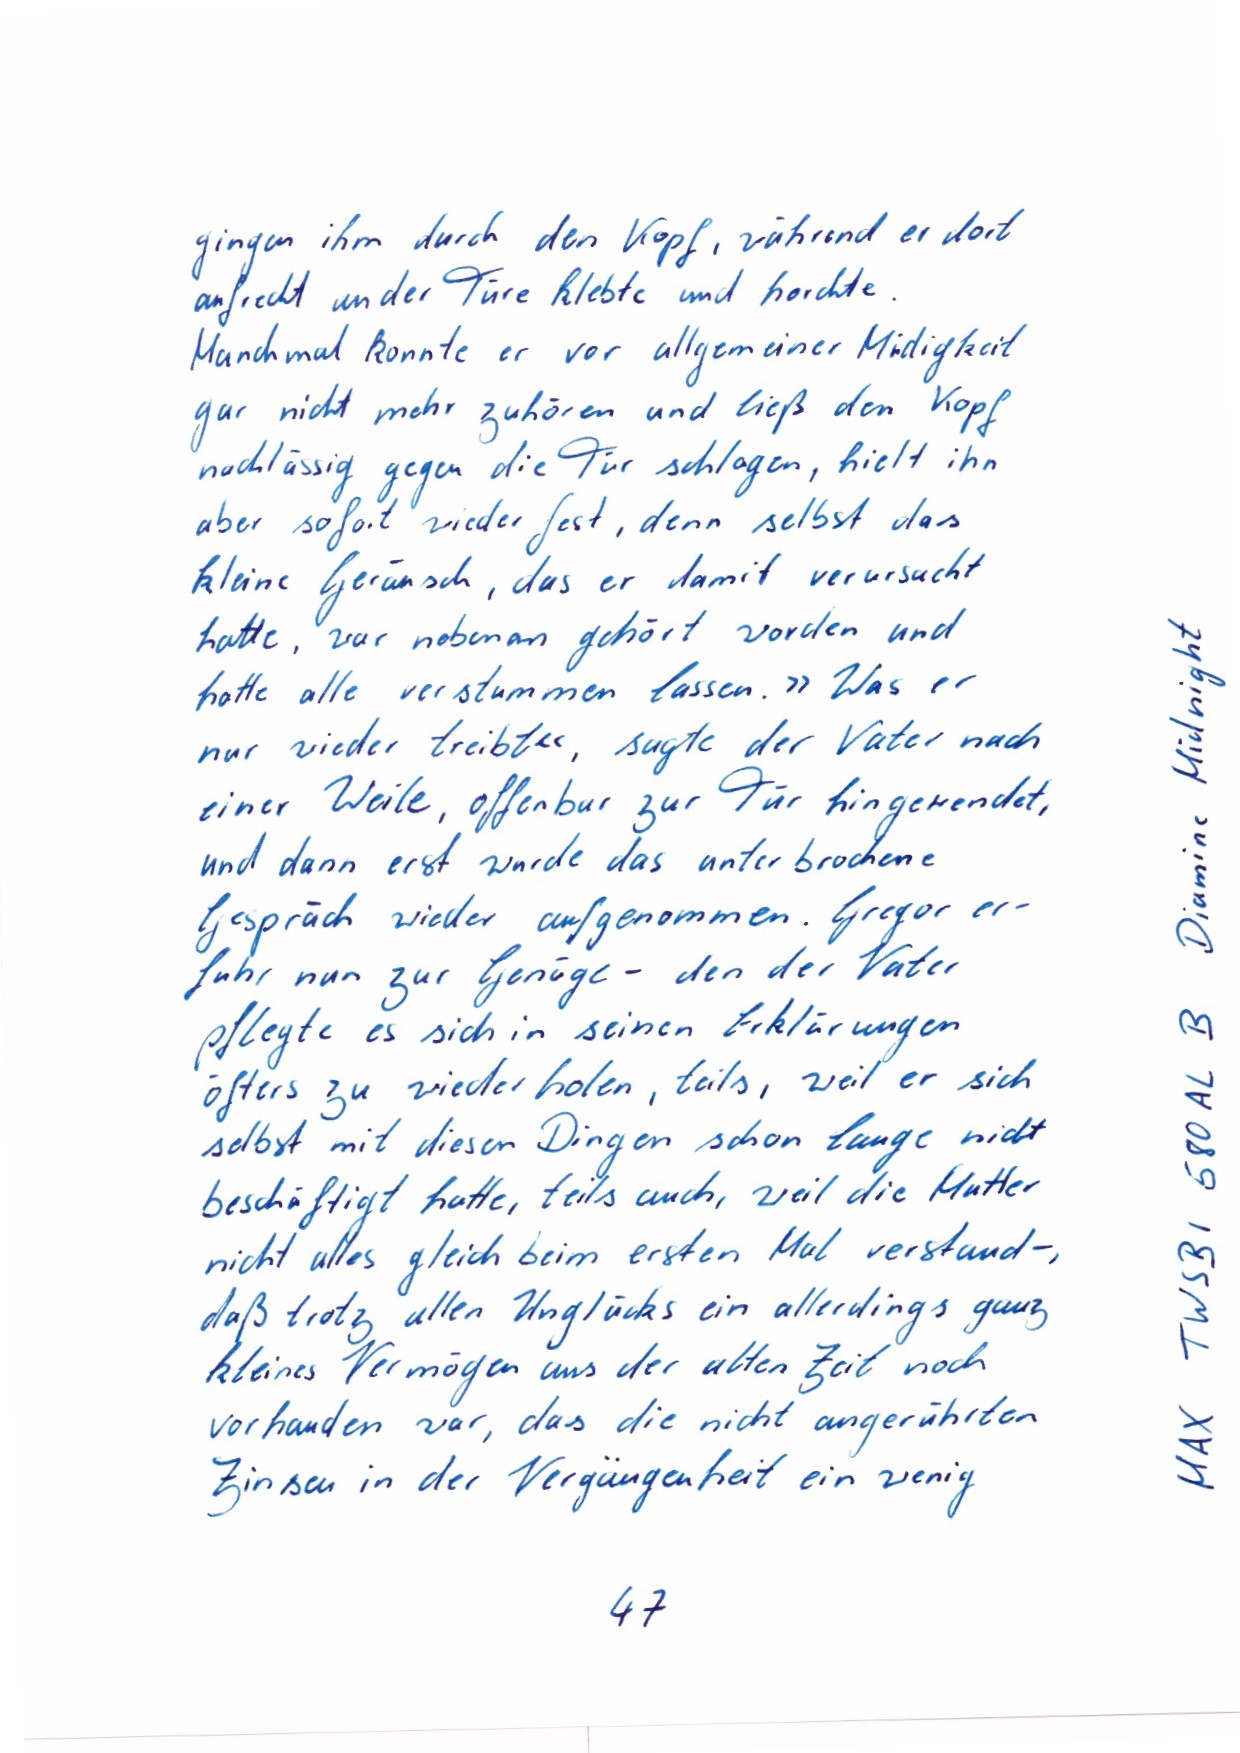 gingen ihm durch den Kopf, während er dort
aufrecht an der Türe klebte und horchte.
Manchmal konnte er vor allgemeiner Müdigkeit
gar nicht mehr zuhören und ließ den Kopf
nachlässig gegen die Tür schlagen, hielt ihn
aber sofort wieder fest, denn selbst das
kleine Geräusch, das er damit verursacht
hatte, war nebenan gehört worden und
hatte alle verstummen lassen. »Was er
nur wieder treibt«, sagte der Vater nach
einer Weile, offenbar zur Tür hingewendet,
und dann erst wurde das unterbrochene
Gespräch wieder aufgenommen. Gregor er-
fuhr nun zur Genüge – den der Vater
pflegte es sich in seinen Erklärungen
öfters zu wiederholen, teils, weil er sich
selbst mit diesen Dingen schon lange nicht
beschäftigt hatte, teils auch, weil die Mutter
nicht alles gleich beim ersten Mal verstand–,
daß trotz allen Unglücks ein allerdings ganz
kleines Vermögen aus der alten Zeit noch
vorhanden war, das die nicht angerührten
Zinsen in der Vergangenheit ein wenig
47
MAX TWSBI 580 AL B Diamine Midnight